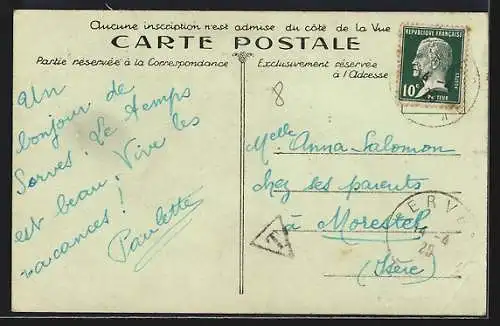 Aucune inscription n'est admise du côté de la Vue
CARTE POSTALE
Partie réservée à la Correspondance
Exclusivement réservée
à l'Adresse
RÉPUBLIQUE FRANÇAISE
10c
POSTES
8
Un
bonjour de
Sorves. Le temps
est beau. Vive les
vacances!
Paulette
Melle Anna Salomon
chez ses parents
à Morestel
(Isère)
T
ERV
14-4